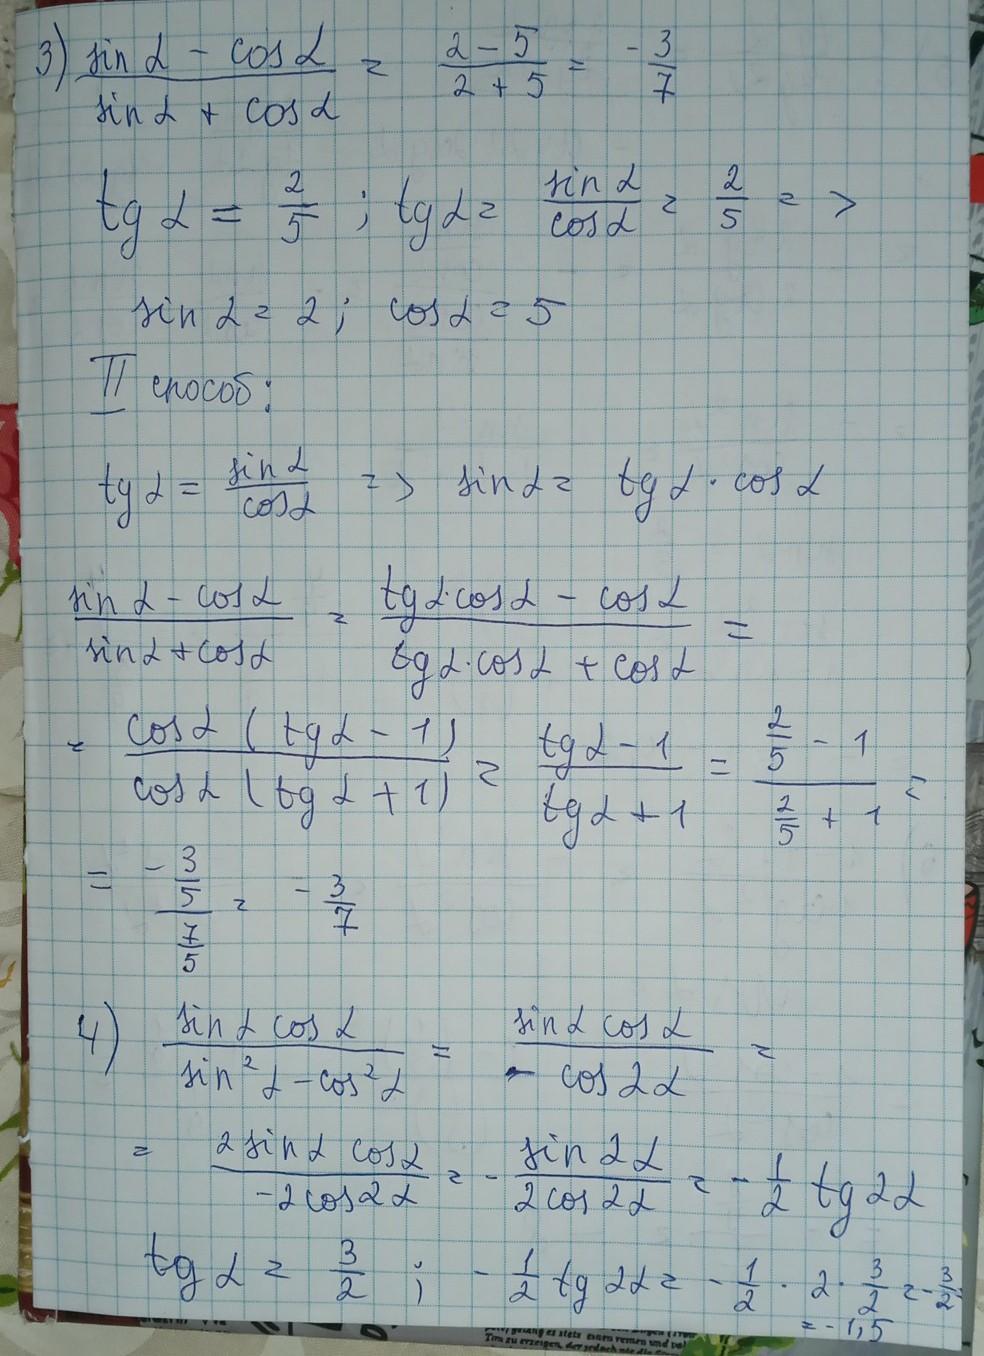 3) (sin α - cos α)/(sin α + cos α) = (2 - 5)/(2 + 5) = -3/7
tg α = 2/5 ; tg α = sin α/cos α = 2/5 =>
sin α = 2; cos α = 5
II способ:
tg α = sin α/cos α => sin α = tg α · cos α
(sin α - cos α)/(sin α + cos α) = (tg α · cos α - cos α)/(tg α · cos α + cos α) =
= (cos α (tg α - 1))/(cos α (tg α + 1)) = (tg α - 1)/(tg α + 1) = (2/5 - 1)/(2/5 + 1) =
= (-3/5)/(7/5) = -3/7
4) (sin α cos α)/(sin² α - cos² α) = (sin α cos α)/(- cos 2α) =
= (2 sin α cos α)/(-2 cos 2α) = - (sin 2α)/(2 cos 2α) = - 1/2 tg 2α
tg α = 3/2 ; - 1/2 tg 2α = - 1/2 · 2 · 3/2 = -3/2
= -1,5